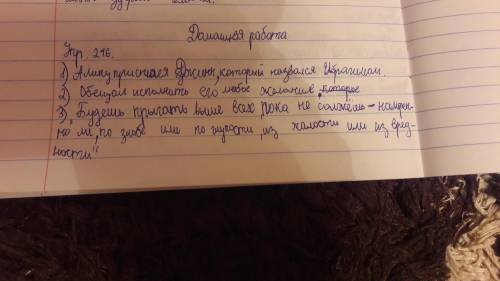 Домашняя работа
Упр. 216.
1) Алику приснился Джинн, который назвался Ибрагимом.
2) Обещал исполнить его любое желание, которое
3) Будешь прыгать выше всех, пока не солжёшь – намерен-
но ли, по злобе или по глупости, из жалости или из вред-
ности"